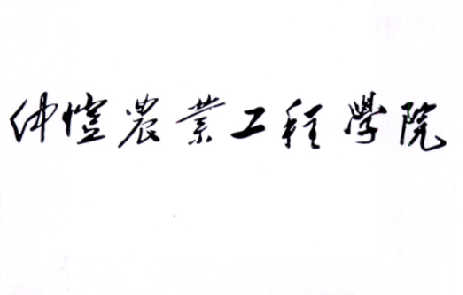 仲愷農業工程學院